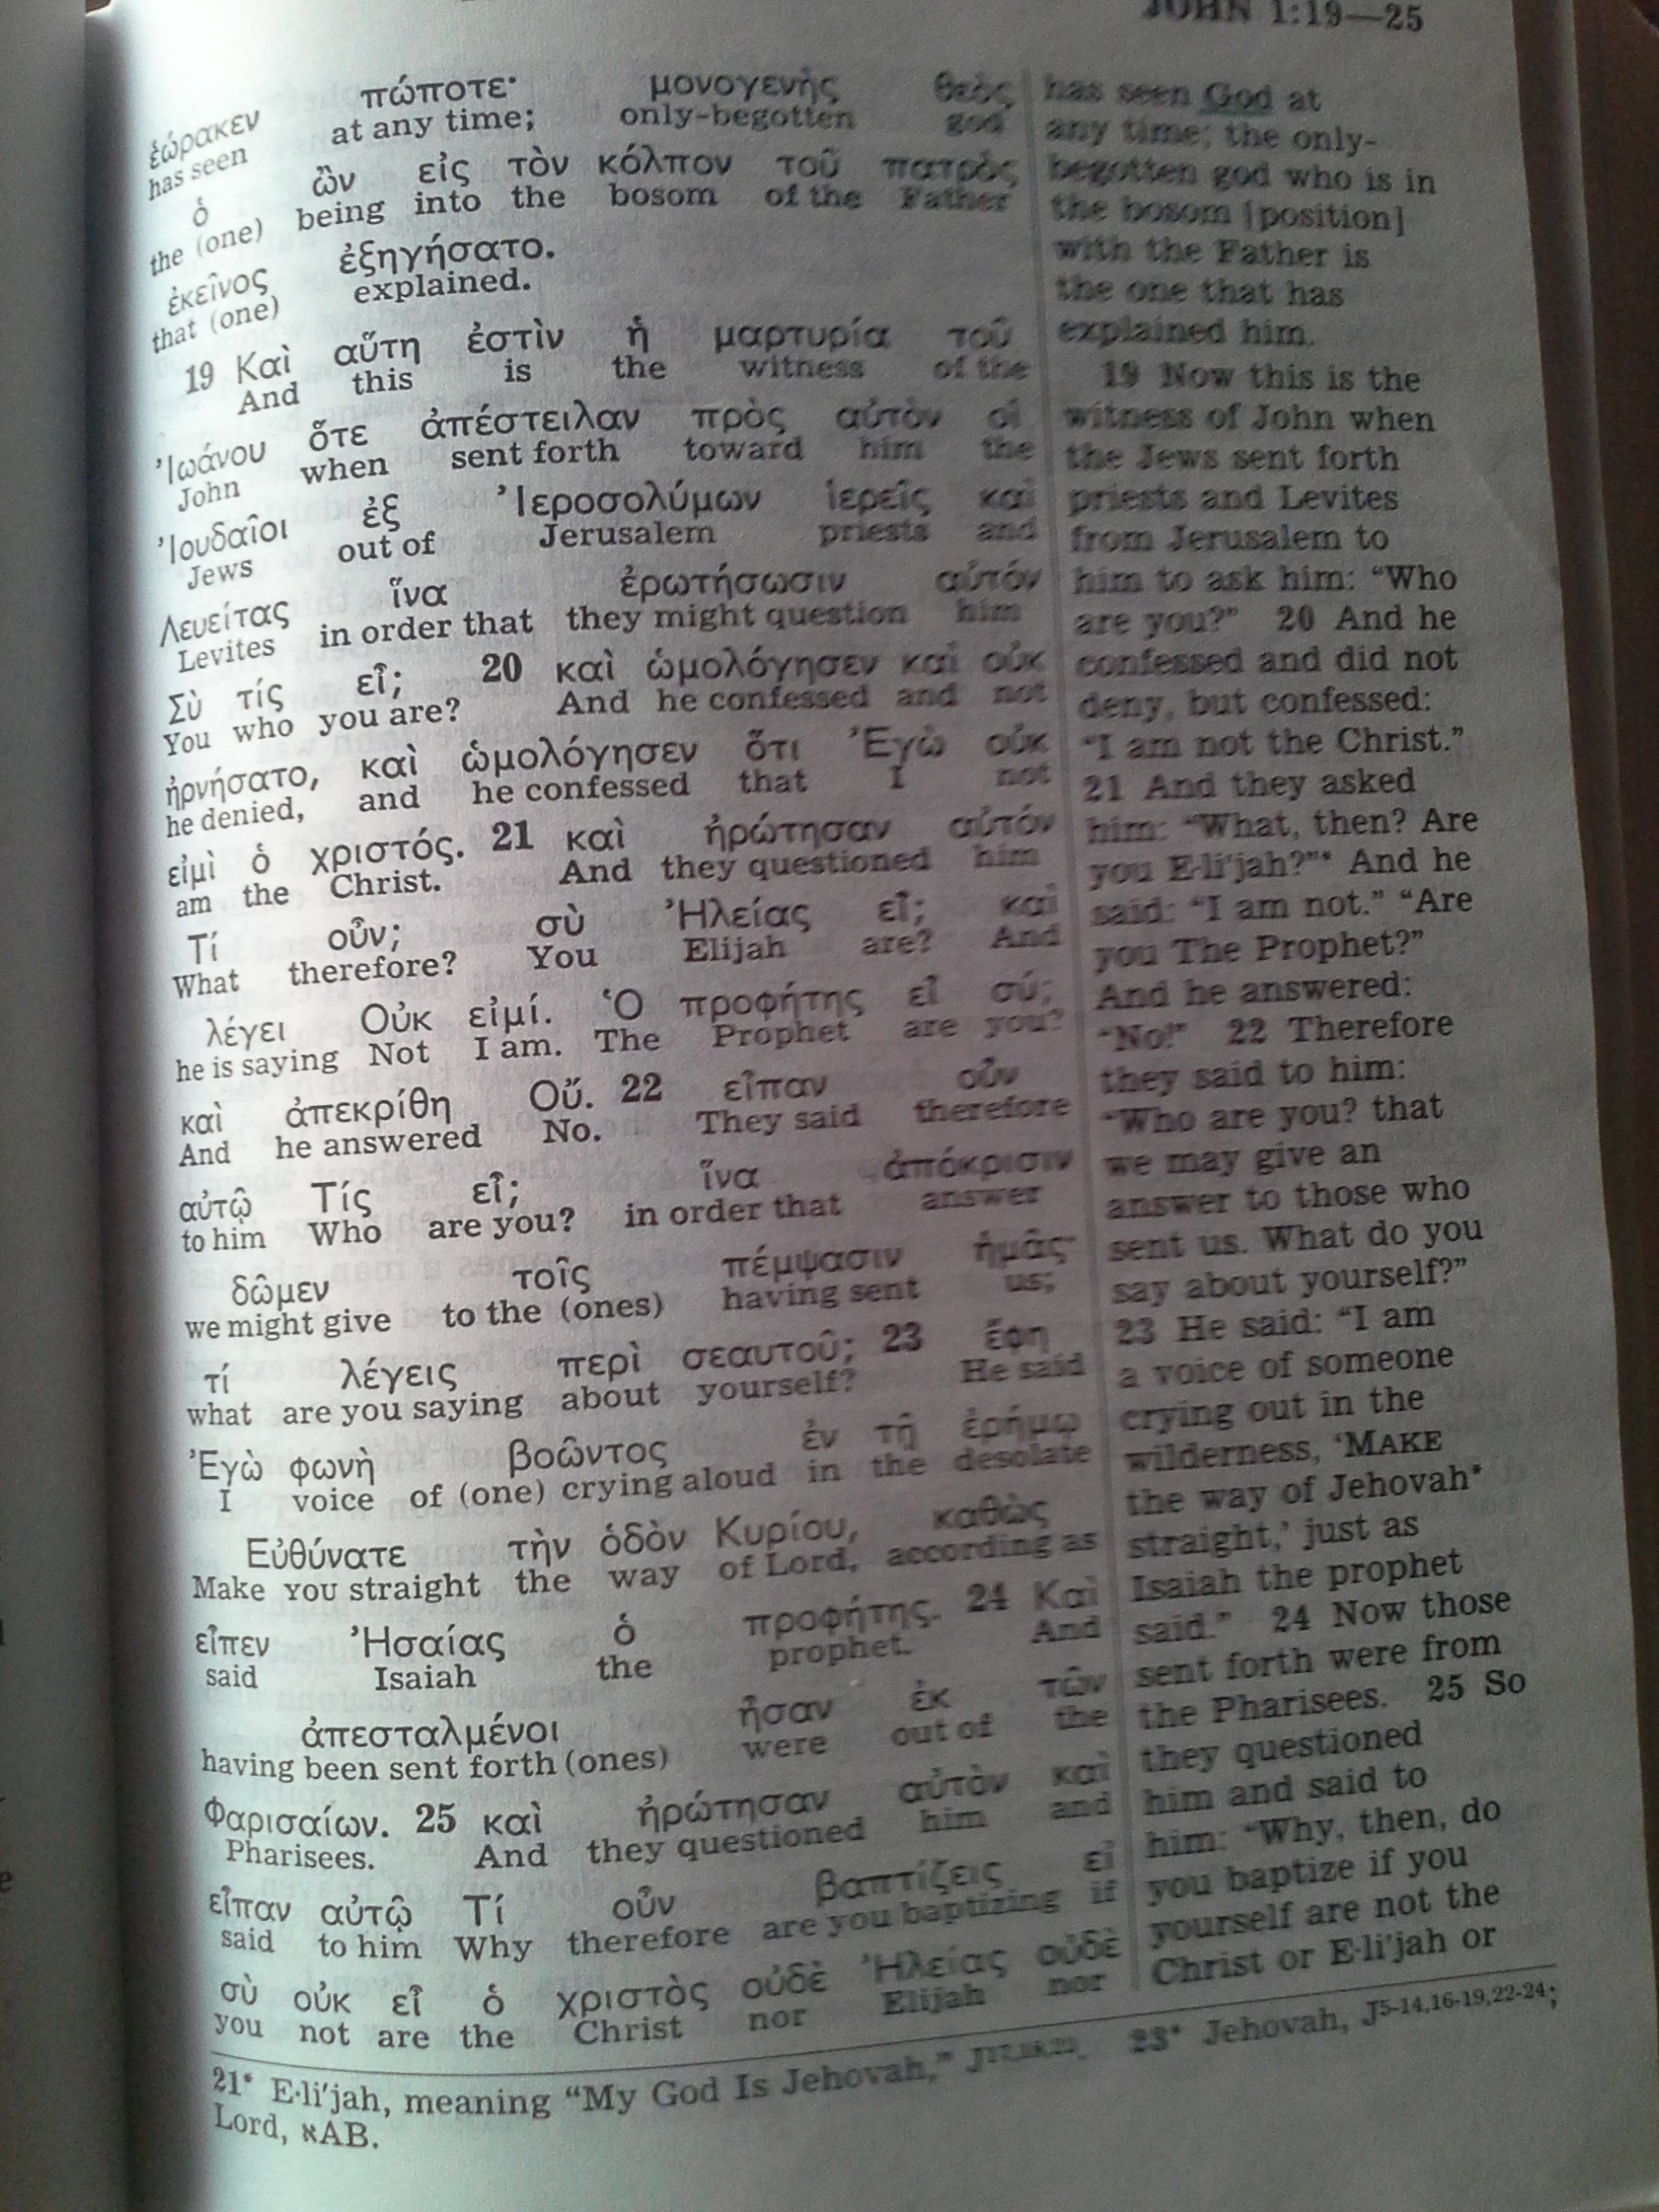 JOHN 1:19—25
ἑώρακεν πώποτε· μονογενὴς θεὸς
has seen at any time; only-begotten god
ὁ ὢν εἰς τὸν κόλπον τοῦ πατρὸς
the (one) being into the bosom of the Father
ἐκεῖνος ἐξηγήσατο.
that (one) explained.
19 Καὶ αὕτη ἐστὶν ἡ μαρτυρία τοῦ
And this is the witness of the
Ἰωάνου ὅτε ἀπέστειλαν πρὸς αὐτὸν οἱ
John when sent forth toward him the
Ἰουδαῖοι ἐξ Ἰεροσολύμων ἱερεῖς καὶ
Jews out of Jerusalem priests and
Λευείτας ἵνα ἐρωτήσωσιν αὐτόν
Levites in order that they might question him
Σὺ τίς εἶ; 20 καὶ ὡμολόγησεν καὶ οὐκ
You who you are? And he confessed and not
ἠρνήσατο, καὶ ὡμολόγησεν ὅτι Ἐγὼ οὐκ
he denied, and he confessed that I not
εἰμὶ ὁ χριστός. 21 καὶ ἠρώτησαν αὐτόν
am the Christ. And they questioned him
Τί οὖν; σὺ Ἠλείας εἶ; καὶ
What therefore? You Elijah are? And
λέγει Οὐκ εἰμί. Ὁ προφήτης εἶ σύ;
he is saying Not I am. The Prophet are you?
καὶ ἀπεκρίθη Οὔ. 22 εἶπαν οὖν
And he answered No. They said therefore
αὐτῷ Τίς εἶ; ἵνα ἀπόκρισιν
to him Who are you? in order that answer
δῶμεν τοῖς πέμψασιν ἡμᾶς·
we might give to the (ones) having sent us;
τί λέγεις περὶ σεαυτοῦ; 23 ἔφη
what are you saying about yourself? He said
Ἐγὼ φωνὴ βοῶντος ἐν τῇ ἐρήμῳ
I voice of (one) crying aloud in the desolate
Εὐθύνατε τὴν ὁδὸν Κυρίου, καθὼς
Make YOU straight the way of Lord, according as
εἶπεν Ἠσαίας ὁ προφήτης. 24 Καὶ
said Isaiah the prophet. And
ἀπεσταλμένοι ἦσαν ἐκ τῶν
having been sent forth (ones) were out of the
Φαρισαίων. 25 καὶ ἠρώτησαν αὐτὸν καὶ
Pharisees. And they questioned him and
εἶπαν αὐτῷ Τί οὖν βαπτίζεις εἰ
said to him Why therefore are you baptizing if
σὺ οὐκ εἶ ὁ χριστὸς οὐδὲ Ἠλείας οὐδὲ
you not are the Christ nor Elijah nor
has seen God at
any time; the only-
begotten god who is in
the bosom [position]
with the Father is
the one that has
explained him.
19 Now this is the
witness of John when
the Jews sent forth
priests and Levites
from Jerusalem to
him to ask him: “Who
are you?” 20 And he
confessed and did not
deny, but confessed:
“I am not the Christ.”
21 And they asked
him: “What, then? Are
you E·li′jah?”* And he
said: “I am not.” “Are
you The Prophet?”
And he answered:
“No!” 22 Therefore
they said to him:
“Who are you? that
we may give an
answer to those who
sent us. What do you
say about yourself?”
23 He said: “I am
a voice of someone
crying out in the
wilderness, ‘MAKE
the way of Jehovah*
straight,’ just as
Isaiah the prophet
said.” 24 Now those
sent forth were from
the Pharisees. 25 So
they questioned
him and said to
him: “Why, then, do
you baptize if you
yourself are not the
Christ or E·li′jah or
21* E·li′jah, meaning “My God Is Jehovah,” 23* Jehovah, J5-14,16-19,22-24;
Lord, אAB.